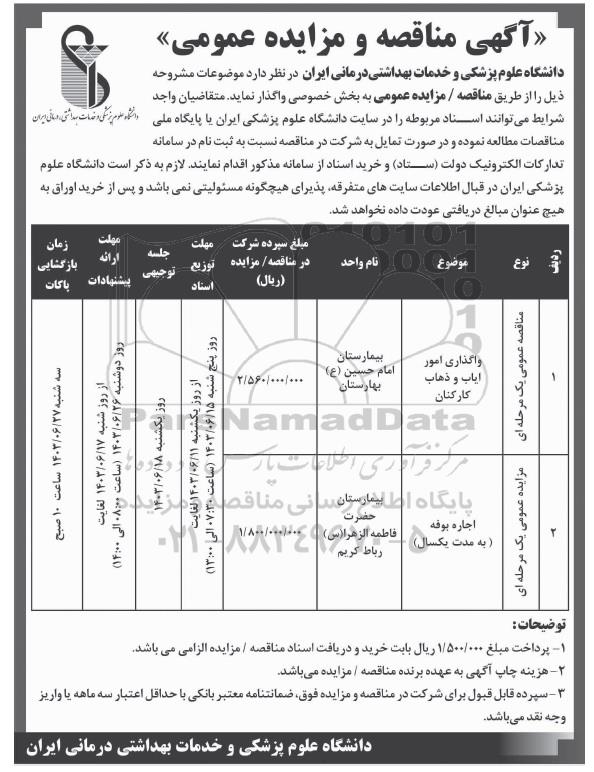 «آگهی مناقصه و مزایده عمومی»
دانشگاه علوم پزشکی و خدمات بهداشتی درمانی ایران
دانشگاه علوم پزشکی و خدمات بهداشتی درمانی ایران در نظر دارد موضوعات مشروحه
ذیل را از طریق مناقصه / مزایده عمومی به بخش خصوصی واگذار نماید. متقاضیان واجد
شرایط می‌توانند اسناد مربوطه را در سایت دانشگاه علوم پزشکی ایران یا پایگاه ملی
مناقصات مطالعه نموده و در صورت تمایل به شرکت در مناقصه نسبت به ثبت نام در سامانه
تدارکات الکترونیک دولت (ستاد) و خرید اسناد از سامانه مذکور اقدام نمایند. لازم به ذکر است دانشگاه علوم
پزشکی ایران در قبال اطلاعات سایت های متفرقه، پذیرای هیچگونه مسئولیتی نمی باشد و پس از خرید اوراق به
هیچ عنوان مبالغ دریافتی عودت داده نخواهد شد.
ردیف
نوع
موضوع
نام واحد
مبلغ سپرده شرکت
در مناقصه / مزایده
(ریال)
مهلت
توزیع
اسناد
جلسه
توجیهی
مهلت
ارائه
پیشنهادات
زمان
بازگشایی
پاکات
۱
مناقصه عمومی یک مرحله ای
واگذاری امور
ایاب و ذهاب
کارکنان
بیمارستان
امام حسین (ع)
بهارستان
۲/۵۶۰/۰۰۰/۰۰۰
۲
مزایده عمومی یک مرحله ای
اجاره بوفه
( به مدت یکسال)
بیمارستان
حضرت
فاطمه الزهرا(س)
رباط کریم
۱/۸۰۰/۰۰۰/۰۰۰
از روز یکشنبه ۱۴۰۳/۰۶/۱۱ لغایت
روز پنج شنبه ۱۴۰۳/۰۶/۱۵ (ساعت ۰۷:۳۰ الی ۱۳:۰۰)
روز یکشنبه ۱۴۰۳/۰۶/۱۸
از روز شنبه ۱۴۰۳/۰۶/۱۷ لغایت
روز دوشنبه ۱۴۰۳/۰۶/۲۶ (ساعت ۰۸:۰۰ الی ۱۴:۰۰)
سه شنبه ۱۴۰۳/۰۶/۲۷ ساعت ۱۰ صبح
ParsNamadData
مرکز فرآوری اطلاعات پارس نماد داده ها
پایگاه اطلاع رسانی مناقصه و مزایده
۰۲۱-۸۸۳۴۹۶۷۰-۵
توضیحات:
۱- پرداخت مبلغ ۱/۵۰۰/۰۰۰ ریال بابت خرید و دریافت اسناد مناقصه / مزایده الزامی می باشد.
۲- هزینه چاپ آگهی به عهده برنده مناقصه / مزایده می‌باشد.
۳- سپرده قابل قبول برای شرکت در مناقصه و مزایده فوق، ضمانتنامه معتبر بانکی با حداقل اعتبار سه ماهه یا واریز
وجه نقد می‌باشد.
دانشگاه علوم پزشکی و خدمات بهداشتی درمانی ایران